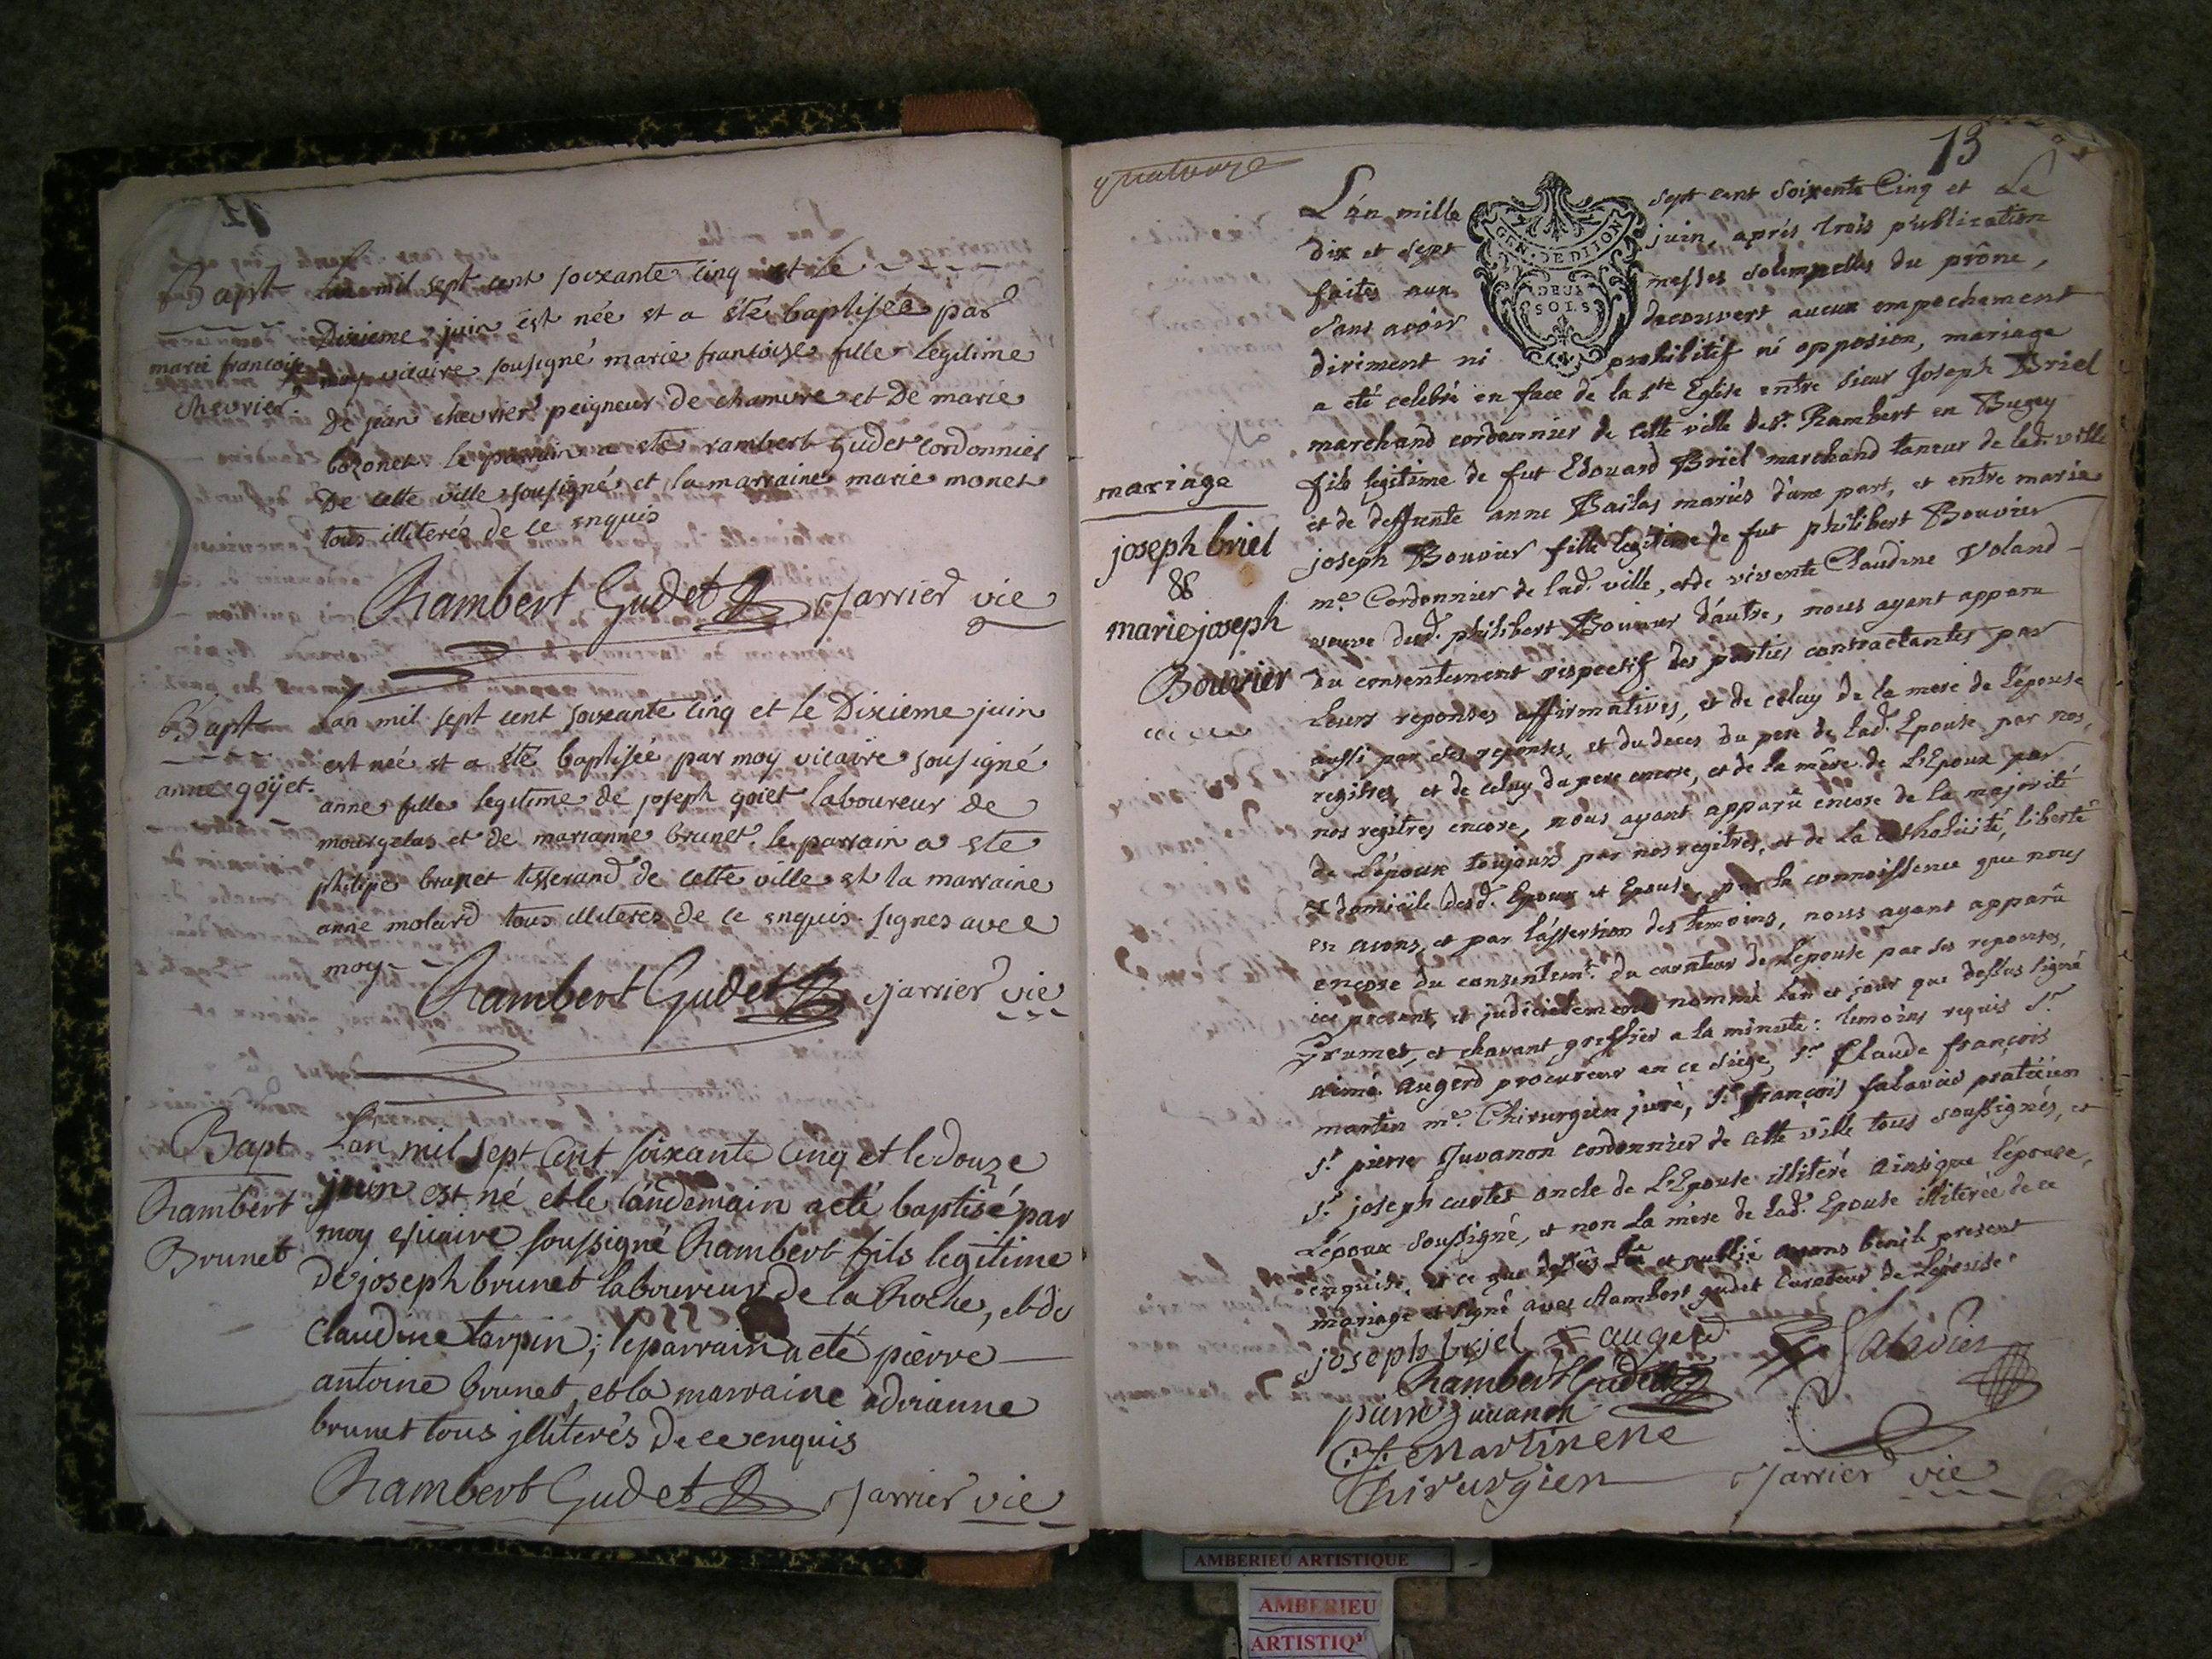 Bapt
marie francoise
chevrier.
Lan mil sept cent soixante cinq et le
Dixieme juin est née et a été baptisée par
moy vicaire sousigné marie francoise fille legitime
de jean chevrier peigneur de chanvre et de marie
bozonet le parrain a ete rambert Gudet cordonnier
de cette ville sousigné et la marraine marie monet
tous illiterés de ce enquis
Rambert Gudet Jarrier vic
Bapt
anne goyet.
Lan mil sept cent soixante cinq et le Dixieme juin
est née et a été baptisée par moy vicaire sousigné
anne fille legitime de joseph goiet laboureur de
mourgelas et de marianne brunet. le parrain a ete
philipe brunet tisserand de cette ville et la marraine
anne molard tous illiteres de ce enquis. signes avec
moy
Rambert Gudet Jarrier vic
Bapt
Rambert
Brunet
L'an mil sept Cent soixante Cinq et le douze
juin est né et le landemain a eté baptisé par
moy vicaire soussigné Rambert fils legitime
de joseph brunet laboureur de la Roche, et de
claudine tarpin; le parrain a eté pierre
antoine brunet, et la marraine adrianne
brunet tous jlliterés de ce enquis
Rambert Gudet Jarrier vic
quatorze
13
GEN. DE DIJON
DEUX
SOLS
mariage
joseph briel
&
marie joseph
Bouvier
L'an mille sept cent soixente Cinq et Le
dix et sept juin, après trois publication
faites aux messes solempnelles du prône,
sans avoir decouvert aucun empechement
diriment ni prohibitif ni opposion, mariage
a eté celebré en face de la ste Eglise entre sieur Joseph Briel
marchand cordonnier de cette ville de st. Rambert en Bugey
fils legitime de fut Edouard Briel marchand taneur de lad. ville
et de deffunte anne Bailas mariés d'une part, et entre marie
joseph Bouvier fille legitime de fut philibert Bouvier
me. Cordonnier de lad. ville, et de vivente Claudine Voland
veuve dud. philibert Bouvier d'autre, nous ayant apparu
du consentement respectif des parties contractantes par
Leurs reponses affirmatives, et de celuy de la mere de l'épouse
aussi par ses reponses, et du deces du pere de lad. Epouse par nos
regitres, et de celuy du pere encore, et de la mère de L'Epoux par
nos regitres encore, nous ayant apparû encore de la majorité
de L'époux toujours par nos regitres, et de La catholicité, liberté
et domicile desd. Epoux et Epouse, par la connoissence que nous
en avons, et par l'assertion des temoins, nous ayant apparû
encore du consentemt. du curateur de l'épouse par ses reponses,
ici present, et judicielement nommé L'an et jour que dessus signé
et chavant greffier a la minute: temoins requis Sr.
aimé augerd procureur en ce siège, Sr. Claude françois
martin me. Chirurgien juré, Sr. françois praticien
Sr. pierre Juvanon cordonnier de cette ville tous soussignés, et
Sr. joseph curtet oncle de L'Epouse illiteré ainsi que l'épouse,
L'époux soussigné, et non La mère de lad. Epouse illiterée de ce
enquise, et ce que dessus lû et publié avons benit le present
mariage et signé avec Rambert gudet Curateur de L'épouse
joseph briel augerd
Rambert Gudet
pierre juvanon
Chirurgien Jarrier vic
AMBERIEU ARTISTIQUE
AMBERIEU
ARTISTIQ